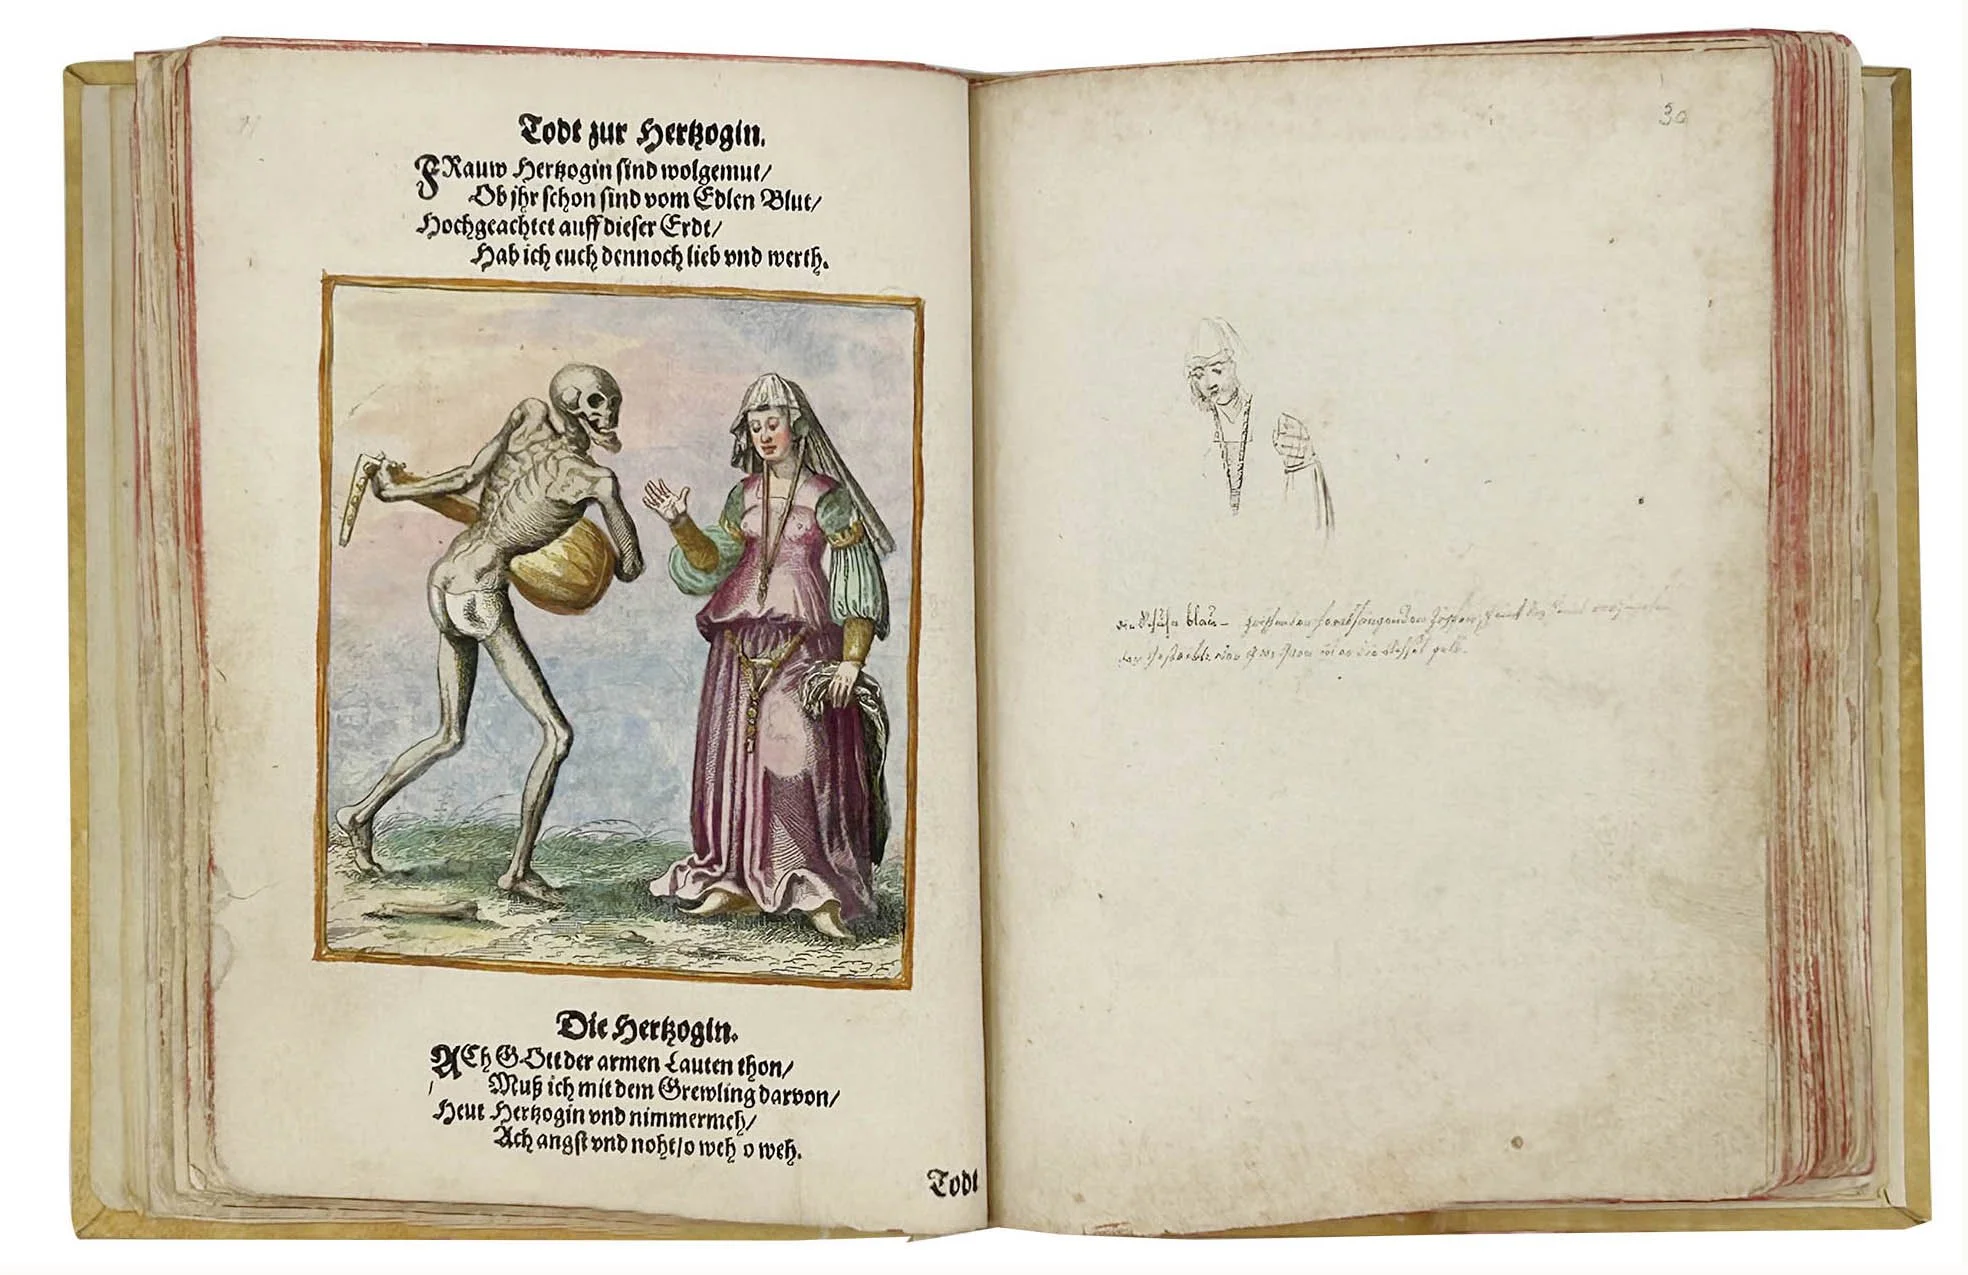 Todt zur Hertzogin.
FRauw Hertzogin sind wolgemut/
Ob jhr schon sind vom Edlen Blut/
Hochgeachtet auff dieser Erdt/
Hab ich euch dennoch lieb vnd werth.
Die Hertzogin.
ACh GOtt der armen Lauten thon/
Muß ich mit dem Grewling darvon/
Heut Hertzogin vnd nimmermeh/
Ach angst vnd noht/o weh o weh.
Todt
30
die Schuhe blau –